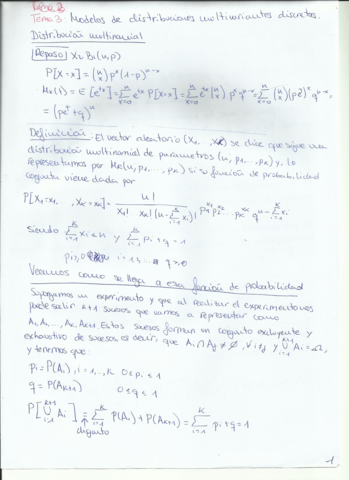 Tema 3: Modelos de distribuciones multivariantes discretas.
Distribución multinomial
Repaso X~Bi(n,p)
P[X=x] = (n x) p^x (1-p)^(n-x)
M_X(t) = E[e^(tx)] = Σ_{x=0}^n e^(tx) P[X=x] = Σ_{x=0}^n e^(tx) (n x) p^x q^(n-x) = Σ_{x=0}^n (n x) (pe^t)^x q^(n-x) =
= (pe^t + q)^n
Definición: El vector aleatorio (X_1, ..., X_k) se dice que sigue una
distribución multinomial de parámetros (n, p_1, ..., p_k) y lo
representamos por M_k(n, p_1, ..., p_k) si su función de probabilidad
conjunta viene dada por
P[X_1=x_1, ..., X_k=x_k] = n! / (x_1! ... x_k! (n - Σ_{i=1}^k x_i)!) p_1^(x_1) p_2^(x_2) ... p_k^(x_k) q^(n - Σ_{i=1}^k x_i)
Siendo Σ_{i=1}^k x_i ≤ n y Σ_{i=1}^k p_i + q = 1
p_i ≥ 0 i=1, ... q ≥ 0
Veamos como se llega a esa función de probabilidad
Supongamos un experimento y que al realizar el experimento nos
puede salir k+1 sucesos que vamos a representar como
A_1, A_2, ..., A_k, A_{k+1}. Estos sucesos forman un conjunto excluyente y
exhaustivo de sucesos, es decir, que A_i ∩ A_j ≠ ∅, ∀ i≠j y ∪_{i=1}^{k+1} A_i = Ω,
y tenemos que:
p_i = P(A_i), i=1, ..., k 0 ≤ p_i ≤ 1
q = P(A_{k+1}) 0 ≤ q ≤ 1
P[∪_{i=1}^{k+1} A_i] = Σ_{i=1}^k P(A_i) + P(A_{k+1}) = Σ_{i=1}^k p_i + q = 1
disjunto
-1